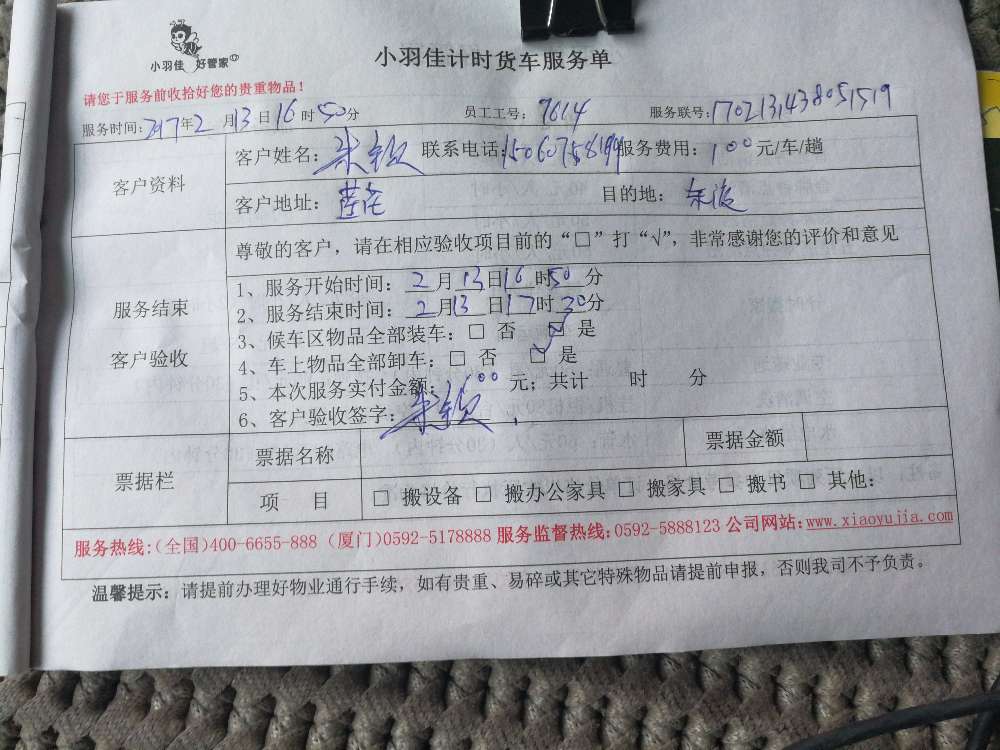 小羽佳 好管家
小羽佳计时货车服务单
请您于服务前收拾好您的贵重物品！
服务时间：2017年2月13日16时50分 员工工号：9614 服务联号：1702131438051519
客户资料
客户姓名： 联系电话：15060758199 服务费用：100元/车/趟
客户地址：莲花 目的地：
服务结束
客户验收
尊敬的客户，请在相应验收项目前的“□”打“√”，非常感谢您的评价和意见
1、服务开始时间：2月13日16时50分
2、服务结束时间：2月13日17时30分
3、候车区物品全部装车：□ 否 ☑ 是
4、车上物品全部卸车：□ 否 ☑ 是
5、本次服务实付金额：100元；共计 时 分
6、客户验收签字：
票据栏
票据名称 票据金额
项 目 □ 搬设备 □ 搬办公家具 □ 搬家具 □ 搬书 □ 其他：
服务热线：(全国)400-6655-888 (厦门)0592-5178888 服务监督热线：0592-5888123 公司网站：www.xiaoyujia.com
温馨提示：请提前办理好物业通行手续，如有贵重、易碎或其它特殊物品请提前申报，否则我司不予负责。